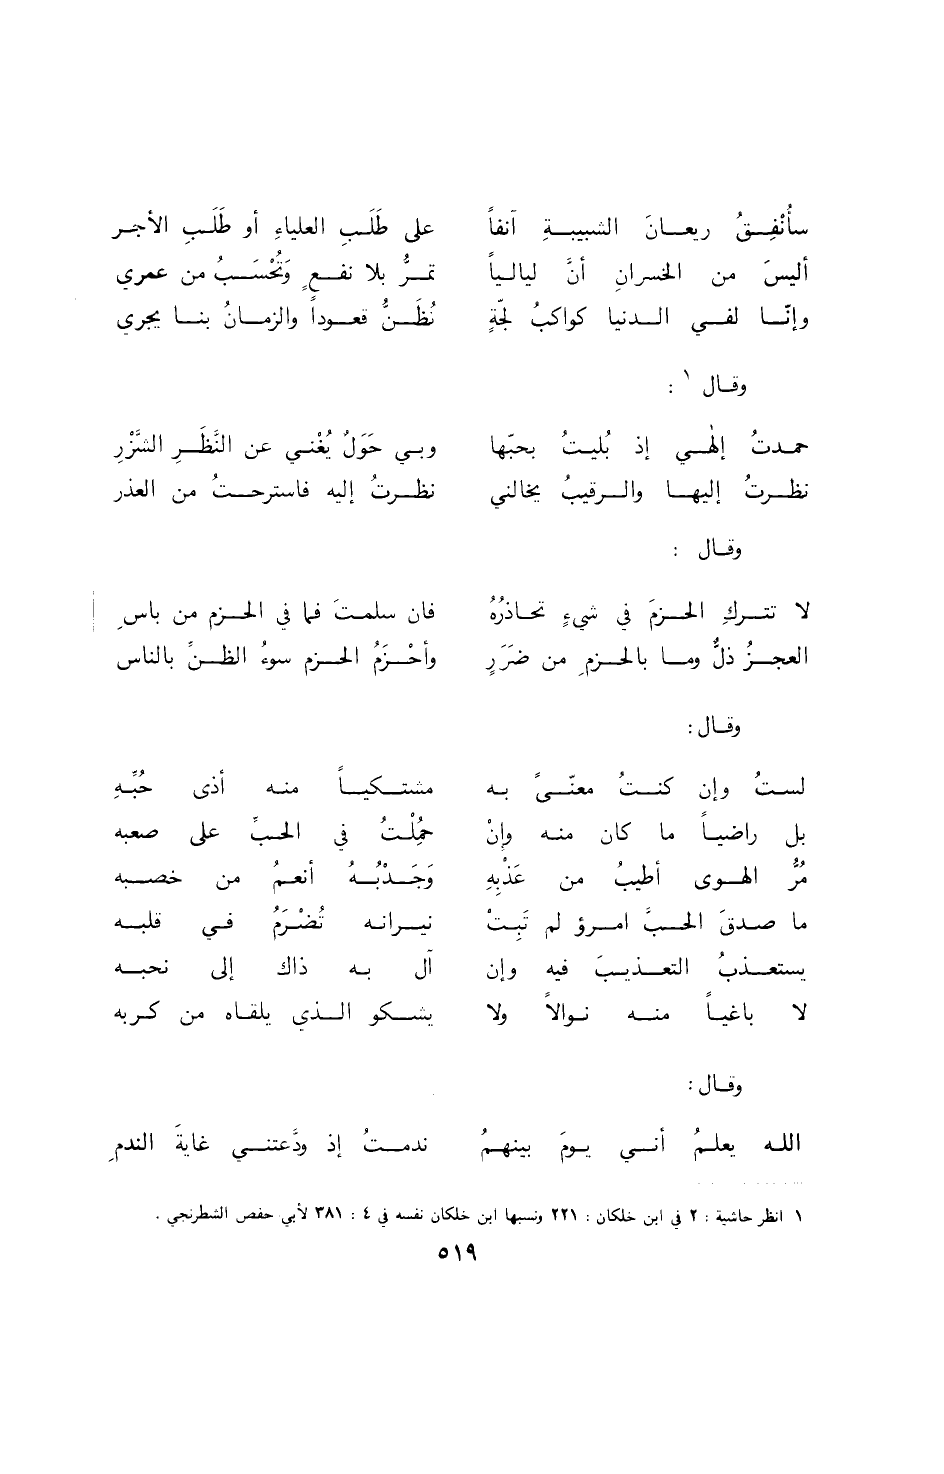 سأُنْفِقُ ريعانَ الشبيبةِ آنفاً على طَلَبِ العلياءِ أو طَلَبِ الأجرِ
أليسَ من الخسرانِ أنَّ ليالياً تمرُّ بلا نفعٍ وَتُحْسَبُ من عمري
وإنّا لفي الدنيا كواكبُ لجّةٍ نُظَنُّ قعوداً والزمانُ بنا يجري
وقال ١ :
حمدتُ إلهي إذ بُليتُ بحبّها وبي حَوَلٌ يُغْني عن النَّظَرِ الشَّزْرِ
نظرتُ إليها والرقيبُ يخالني نظرتُ إليه فاسترحتُ من العذر
وقال :
لا تتركِ الحزمَ في شيءٍ تحاذرُهُ فان سلمتَ فما في الحزم من باسِ
العجزُ ذلٌّ وما بالحزمِ من ضَرَرٍ وأحْزَمُ الحزم سوءُ الظنِّ بالناس
وقال:
لستُ وإن كنتُ معنّىً به مشتكياً منه أذى حُبِّهِ
بل راضياً ما كان منه وإنْ حُمِّلْتُ في الحبِّ على صعبه
مُرُّ الهوى أطيبُ من عَذْبِهِ وَجَدْبُهُ أنعمُ من خصبه
ما صدقَ الحبَّ امرؤ لم تَبِتْ نيرانه تُضْرَمُ في قلبه
يستعذبُ التعذيبَ فيه وإن آل به ذاك إلى نحبه
لا باغياً منه نوالاً ولا يشكو الذي يلقاه من كربه
وقال:
الله يعلمُ أني يومَ بينهمُ ندمتُ إذ ودَّعتني غايةَ الندمِ
١ انظر حاشية : ٢ في ابن خلكان : ٢٢١ ونسبها ابن خلكان نفسه في ٤ : ٣٨١ لأبي حفص الشطرنجي .
٥١٩